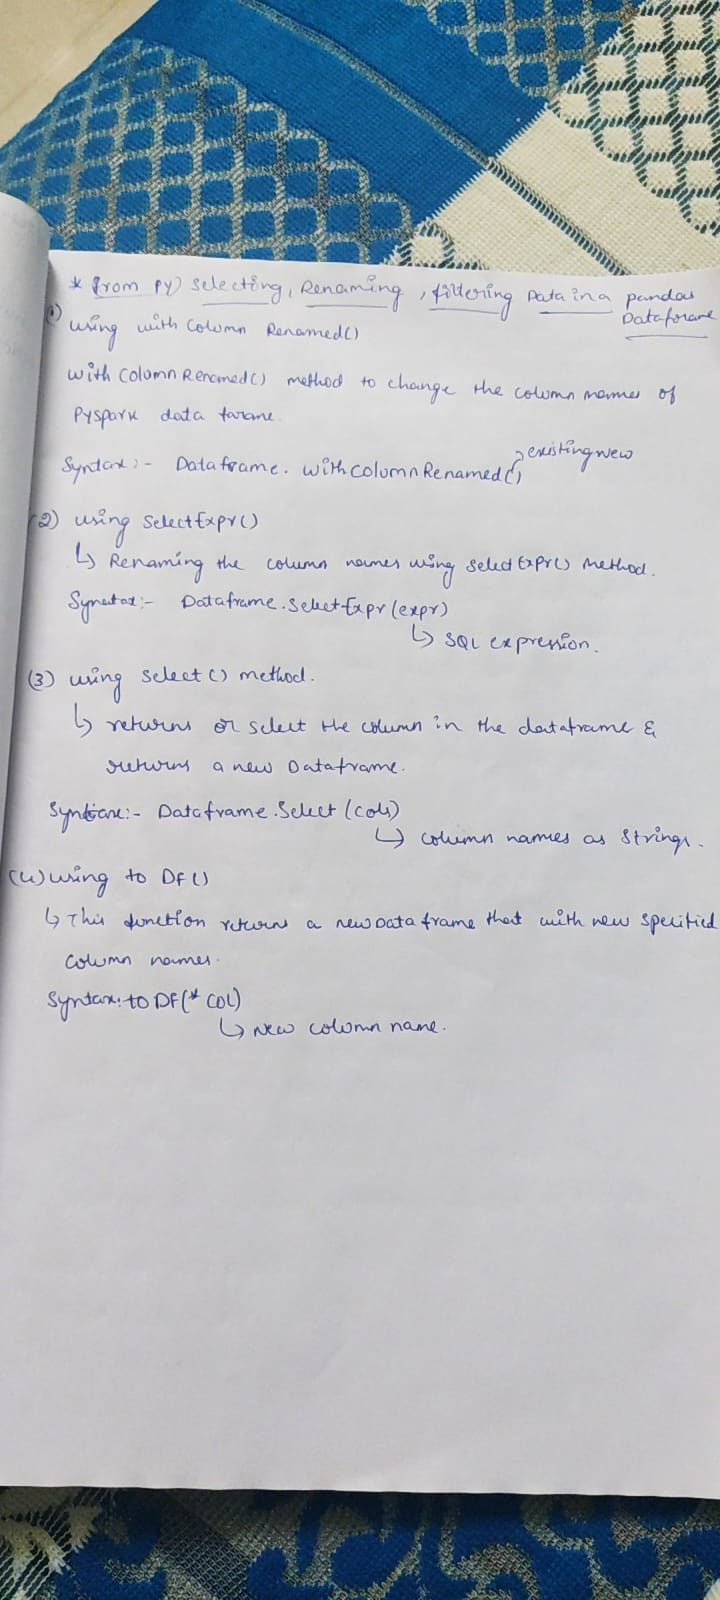 * from PY) Selecting, Renaming, filtering Data in a pandas
Dataframe
(1) using with Column Renamed()
with Column Renamed() method to change the column names of
Pyspark data farame.
Syntax:- Dataframe. withcolumnRenamed() → existing new
(2) using SelectExpr()
↳ Renaming the column names using Select Expr() Method.
Syneutax:- Dataframe.SelectExpr(expr)
↳ SQL expression.
(3) using select() method.
↳ returns or select the column in the dataframe &
returns a new Dataframe.
Syntax:- Dataframe.Select (cols)
↳ column names as Strings.
(4) using to DF()
↳ This function returns a new Data frame that with new specified
column names.
Syntax: to DF(* COL)
↳ New column name.